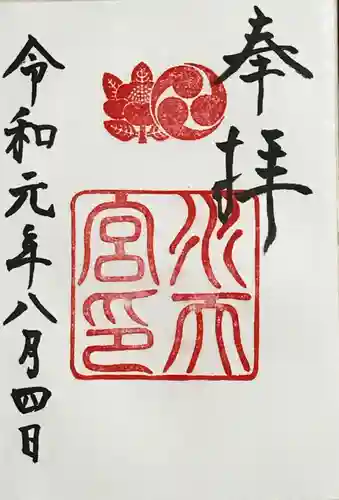 奉拝
水天宮印
令和元年八月四日